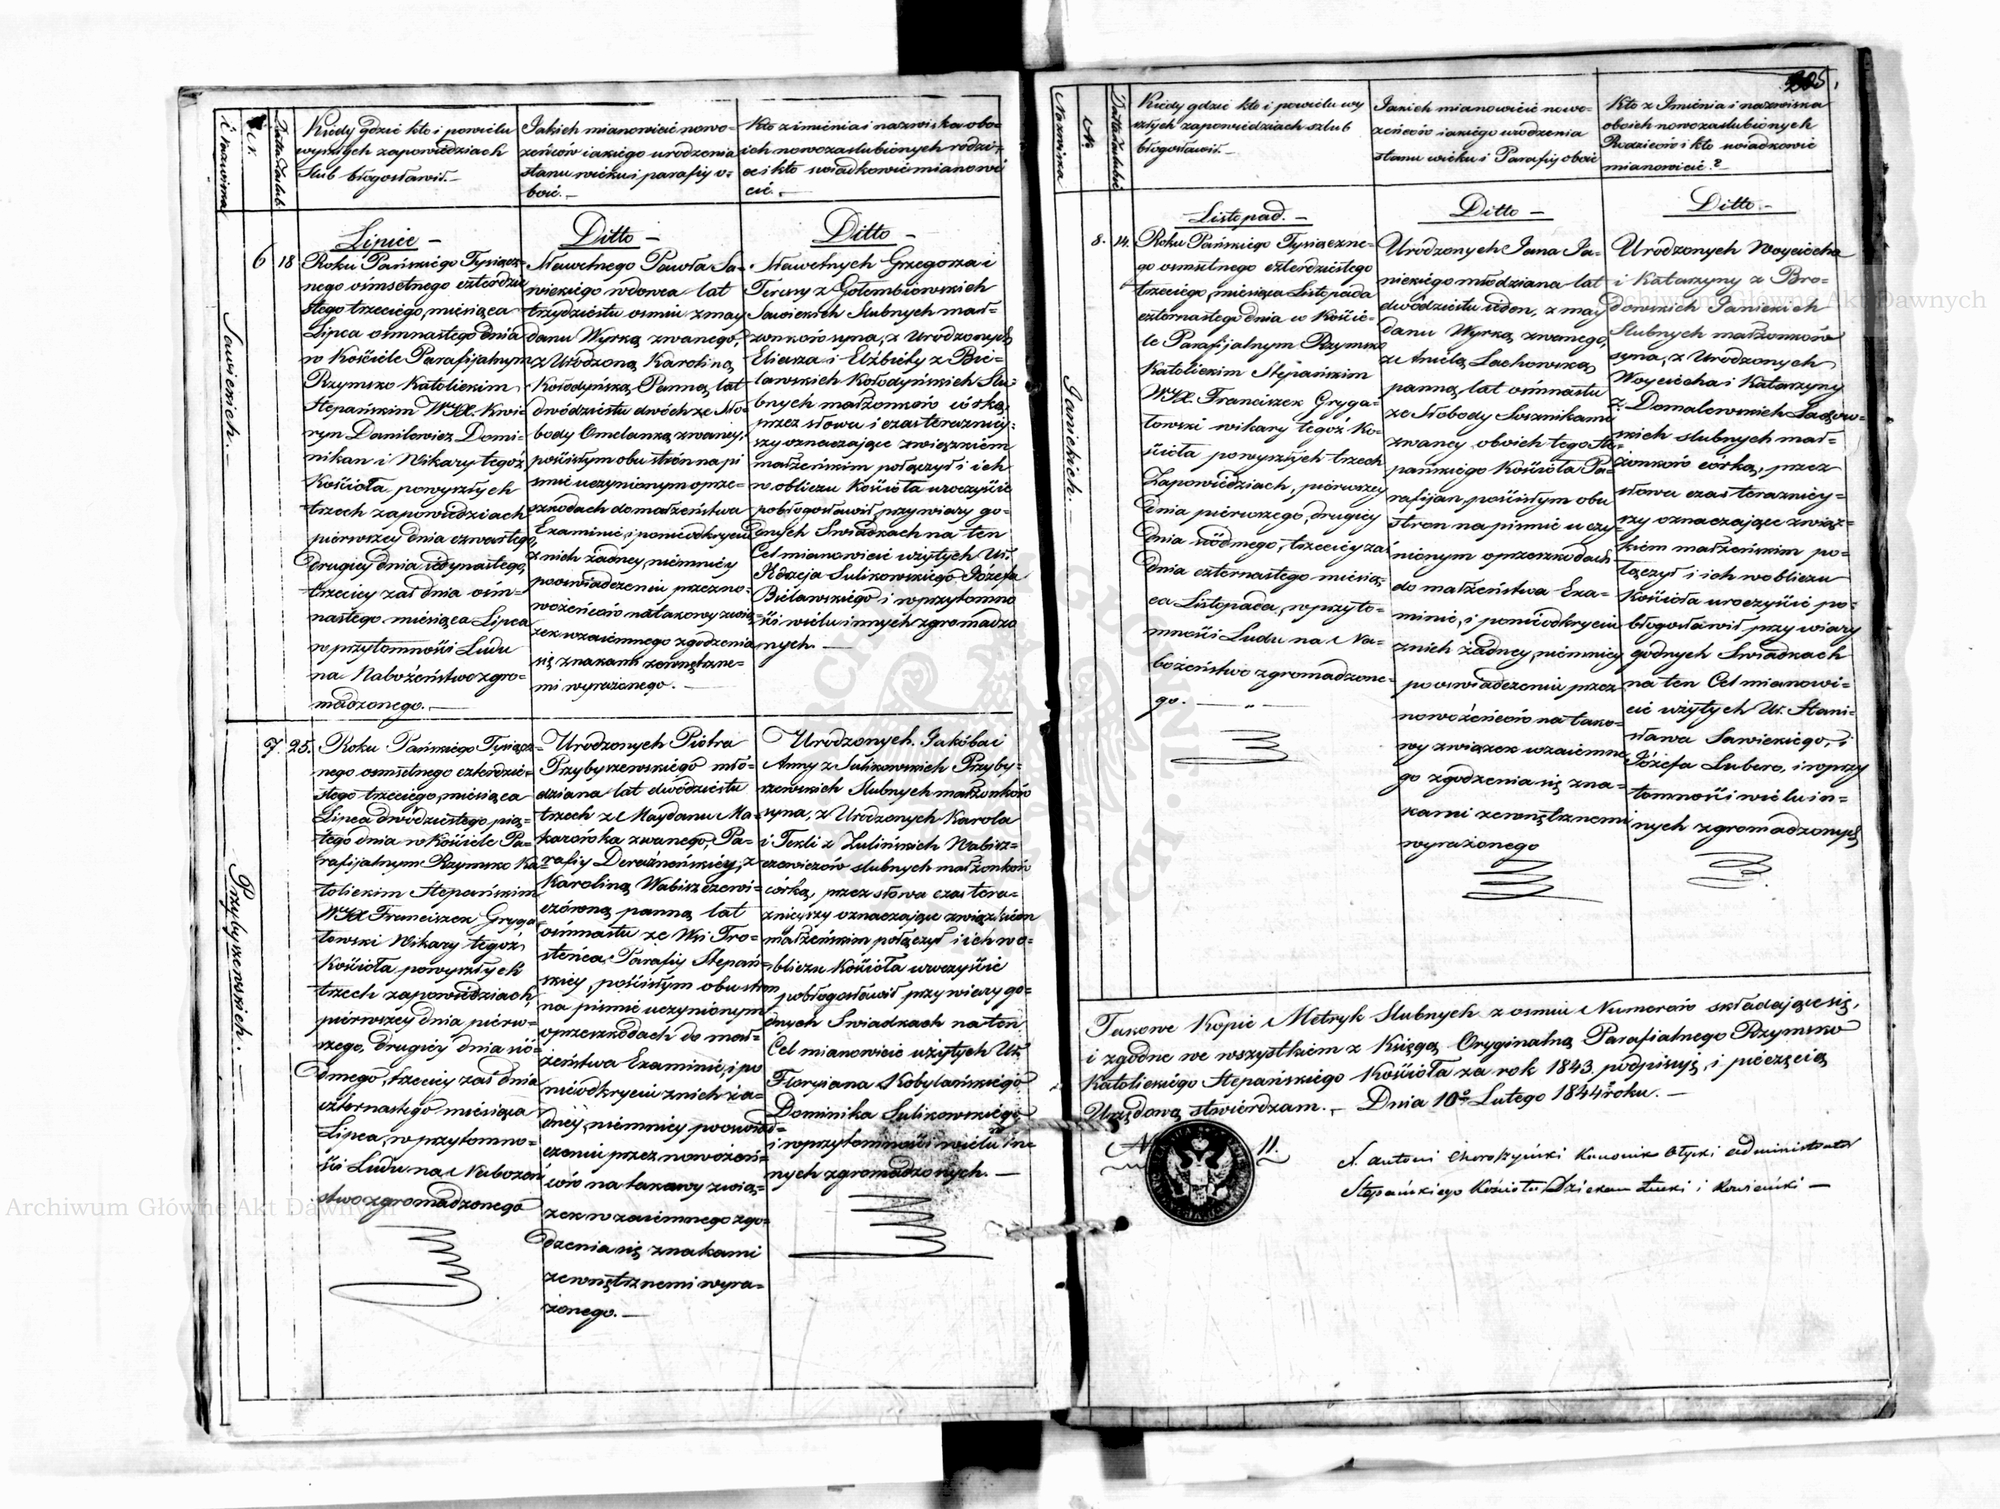 N. i Nazwiska
Datta slub.
Kiedy gdzie kto i powielu
wyszłych zapowiedziach
slub błogosławił.—
Jakich mianowicie nowo-
żeńców iakiego urodzenia
stanu wieku i parafiy o-
boie.—
Kto z imienia i nazwiska obo-
ich nowozaslubionych rodzi-
ce i kto swiadkowie mianowi
cie.—
Lipiec —
Ditto —
Ditto —
6
18
Sawickich.
Roku Pańskiego Tysiącz-
nego osmsetnego czterdzie
stego trzeciego, miesiąca
Lipca osmnastego dnia
w Kościele Parafijalnym
Rzymsko Katolickim
Stepańskim WJX. Kwi-
ryn Danilowicz Domi-
nikan i Wikary tegoż
Kościoła, powyszłych
trzech zapowiedziach
pierwszey dnia czwartego,
drugiey dnia iedynastego,
trzeciey zaś dnia ośm-
nastego miesiąca Lipca
w przytomności Ludu
na Nabożeństwo zgro-
madzonego.—
Sławetnego Pawła Sa-
wickiego wdowca lat
trzydziestu osmiu z may
danu Wyrka zwanego,
z Urodzoną Karoliną
Kołodyńską Panną lat
dwódziestu dwóch ze Sło-
body Omelanka zwaney,
pościsłym obu strón na pi
smie uczynionym oprze-
szkodach do małżeństwa
Examinie, i ponieodkryciu
z nich żadney, niemniey
poswiadczeniu przez no-
wożeńców na takowy zwią-
zek wzaiemnego zgodzenia
się znakami zewnętrzne-
mi wyrażonego.—
Sławetnych Grzegorza i
Teresy z Gołembiowskich
Sawickich slubnych mał-
żonków syna, z Urodzonych
Eliasza i Elżbiety z Bie-
lawskich Kołodyńskich slu-
bnych małżonków córką,
przez słowa i czas teraźniey-
szy oznaczające związkiem
małżeńskim połączył i ich
w obliczu Kościoła uroczyście
pobłogosławił, przy wiary go-
dnych Swiadkach na ten
Cel mianowicie użytych Ur.
Ildzieja Sulikowskiego Józefa
Bielawskiego i w przytomno
ści wielu innych zgromadzo
nych.—
7.
25.
Przybyszewskich.
Roku Pańskiego Tysiącz-
nego osmsetnego czterdzie-
stego trzeciego, miesiąca
Lipca dwódziestego pią-
tego dnia w Kościele Pa-
rafijalnym Rzymsko Ka
tolickim Stepańskim
WJX Franciszek Gryga-
towski Wikary tegoż
Kościoła powyszłych
trzech zapowiedziach
pierwszey dnia pierw-
szego, drugiey dnia sió-
dmego, trzeciey zaś dnia
czternastego miesiąca
Lipca, w przytomno-
ści Ludu na Nabożeń
stwo zgromadzonego
Urodzonych Piotra
Przybyszewskiego mło-
dziana lat dwódziestu
trzech ze Maydanu Ma-
karówka zwanego, Pa-
rafiy Derażneńskiey, z
Karoliną Wabiszczewi-
czówną panną lat
ośmnastu ze Wsi Tro-
steńca Parafiy Stepań-
skiey, pościsłym obu stron
na pismie uczynionym
oprzeszkodach do mał-
żeństwa Examinie, i po
nieodkryciu z nich ża-
dney, niemniey poswiad-
czeniu przez nowożeń-
ców na takowy zwią-
zek w zaiemnego zgo-
dzenia się znakami
zewnętrznemi wyra-
żonego.—
Urodzonych Jakóba i
Anny z Sulikowskich Przyby-
szewskich slubnych małżonków
syna, z Urodzonych Karola
i Tekli z Zulińskich Wabisz-
czewiczów slubnych małżonków
córką, przez słowa czas tera-
źnieyszy oznaczające związkiem
małżeńskim połączył i ich w o-
bliczu Kościoła uroczyście
pobłogosławił przy wiary go-
dnych Swiadkach na ten
Cel mianowicie użytych Ur.
Floryiana Kobylańskiego
Dominika Sulikowskiego
i w przytomności wielu in-
nych zgromadzonych.—
305.
Nazwiska
N.
Datta slubu
Kiedy gdzie kto i powielu wy
szłych zapowiedziach szlub
błogosławił—
Jakich mianowicie nowo-
żeńców iakiego urodzenia
stanu wieku i Parafiy oboie
Kto z Imienia i nazwiska
oboich nowozaslubionych
Rodziców i kto swiadkowie
mianowicie?—
Listopad.—
Ditto —
Ditto —
8.
14.
Janickich.
Roku Pańskiego Tysiączne-
go osmsetnego czterdziestego
trzeciego, miesiąca Listopada
czternastego dnia w Koście-
le Parafijalnym Rzymsko
Katolickim Stepańskim
WJX. Franciszek Gryga-
towski wikary tegoż Ko-
ścioła powyszłych trzech
Zapowiedziach, pierwszey
dnia pierwszego, drugiey
dnia siódmego, trzeciey zaś
dnia czternastego miesią-
ca Listopada, w przyto-
mności Ludu na Na-
bożeństwo zgromadzone-
go.— „ —
Urodzonych Jana Ja-
nickiego młodziana lat
dwódziestu ieden, z may
danu Wyrka zwanego,
ze Anielą Sachowską
panną lat ośmnastu
ze Słobody Sosznikami
zwaney oboich tego Ste-
pańskiego Kościoła Pa-
rafijan, pościsłym obu
stron na pismie uczy-
nionym oprzeszkodach
do małżeństwa Exa-
minie, i ponieodkryciu
z nich żadney, niemniey
poswiadczeniu przez
nowożeńców na tako-
wy związek wzaiemne
go zgodzenia się zna-
kami zewnętrznemi
wyrażonego
Urodzonych Woyciecha
i Katarzyny z Bro-
dowskich Janickich
slubnych małżonków
syna, z Urodzonych
Woyciecha i Katarzyny
z Domalewskich Sachow-
skich slubnych mał-
żonków córką, przez
słowa czas teraźniey-
szy oznaczające związ-
kiem małżeńskim po-
łączył i ich w obliczu
Kościoła uroczyście po-
błogosławił przy wiary
godnych Swiadkach
na ten Cel mianowi-
cie użytych Ur. Stani-
sława Sawickiego, i
Józefa Lubero, i w przy
tomności wielu in-
nych zgromadzonych
Takowe Kopie Metryk Slubnych z osmiu Numerów składające się,
i zgodne we wszystkiem z Księgą Oryginalną Parafialnego Rzymsko
Katolickiego Stepańskiego Kościoła za rok 1843 podpisuję, i pieczęcią
Urzędową stwierdzam.— Dnia 10° Lutego 1844 roku.—
N 11.
X. Antoni Choroszyński Kanonik Ołycki Administrator
Stepańskiego Kościoła Dziekan Łucki i Rowieński —
Archiwum Główne Akt Dawnych
Archiwum Główne Akt Dawnych